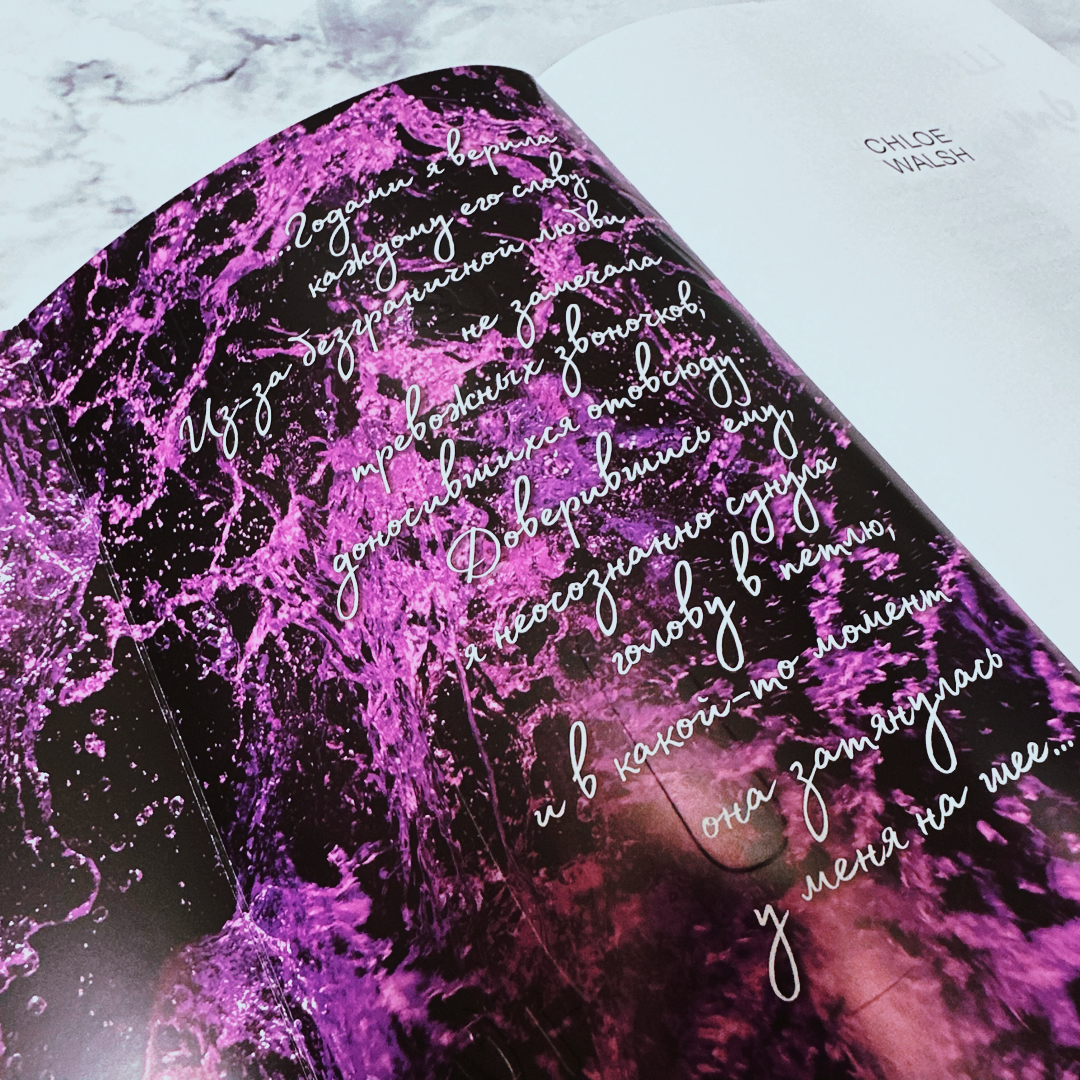 ...Годами я верила
каждому его слову.
Из-за безграничной любви
не замечала
тревожных звоночков,
доносившихся отовсюду.
Доверившись ему,
я неосознанно сунула
голову в петлю,
и в какой-то момент
она затянулась
у меня на шее...
CHLOE
WALSH